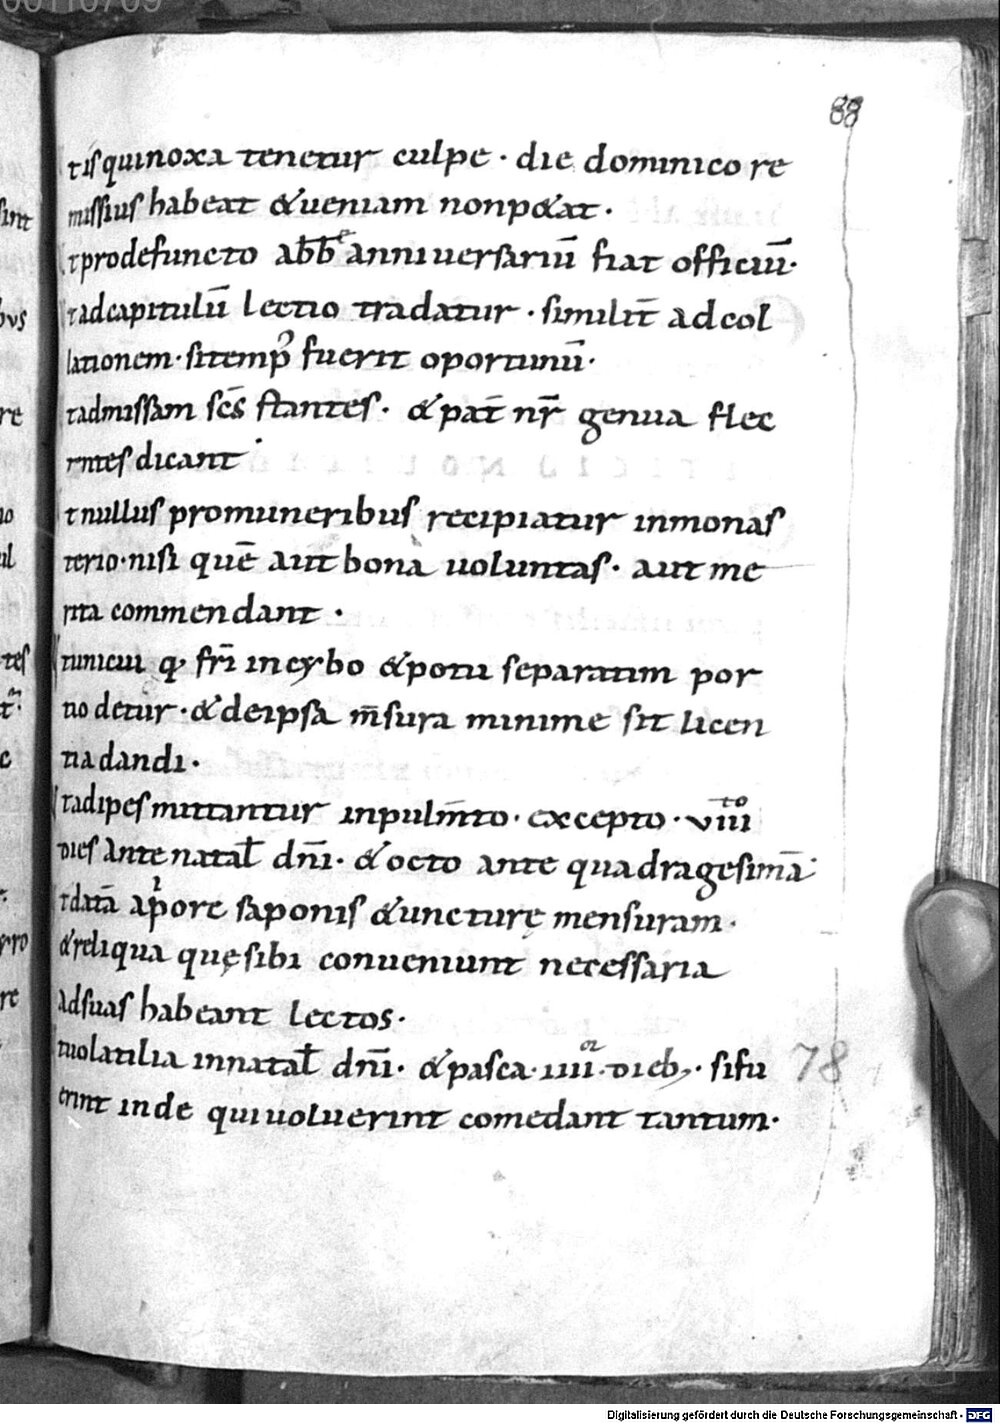 88
tis quinoxa tenetur culpe · die dominico re
missius habeat & ueniam non p&at ·
t pro defuncto abb̄e anniuersariū fiat officiū·
t ad capitulū lectio tradatur · similit̄ ad col
lationem · si temp᷒ fuerit oportunū·
t ad missam sc̄s stantes · & pat̄ nr̄ genua flec
tntes dicant
t nullus pro muneribus recipiatur in monas
terio · nisi quē aut bona uoluntas · aut me
rita commendant ·
t unicui q; fr̄i in cybo & potu separatim por
tio detur · & de ipsa m̄sura minime sit licen
tia dandi ·
t adipes mittantur in pulm̄to · excepto · viiiᵗᵒ
dies ante natal̄ dn̄i · & octo ante quadragesimā·
t datā apⁱore saponis & uncturę mensuram ·
& reliqua quę sibi conueniunt necessaria
ad suas habeant lectos ·
t uolatilia in natal̄ dn̄i · & pasca · iiii · dieb; · si fu
erint inde qui uoluerint comedant tantum ·
78
Digitalisierung gefördert durch die Deutsche Forschungsgemeinschaft - DFG